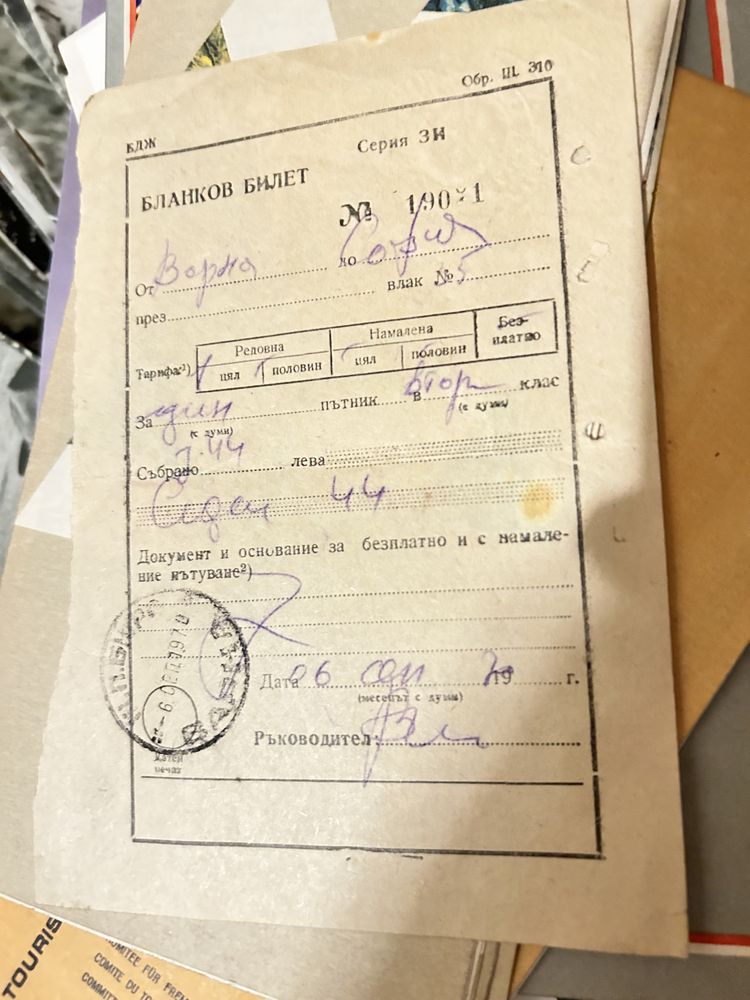 Обр. III. 310
БДЖ
Серия ЗИ
БЛАНКОВ БИЛЕТ
№ 190
От Варна до София
през влак № 35
Тарифа¹) Редовна Намалена Без-
цял половин цял половин платно
За един пътник в втор клас
(с думи) (с думи)
Събрано 7.44 лева
Седем 44
Документ и основание за безплатно и с намале-
ние пътуване²)
Дата 06 сеп 19 70 г.
(месецът с думи)
Ръководител:
ВАРНА
Датен
печат
TOURIS
KOMITEE FÜR FREM
COMITE DU TO
COMMITT